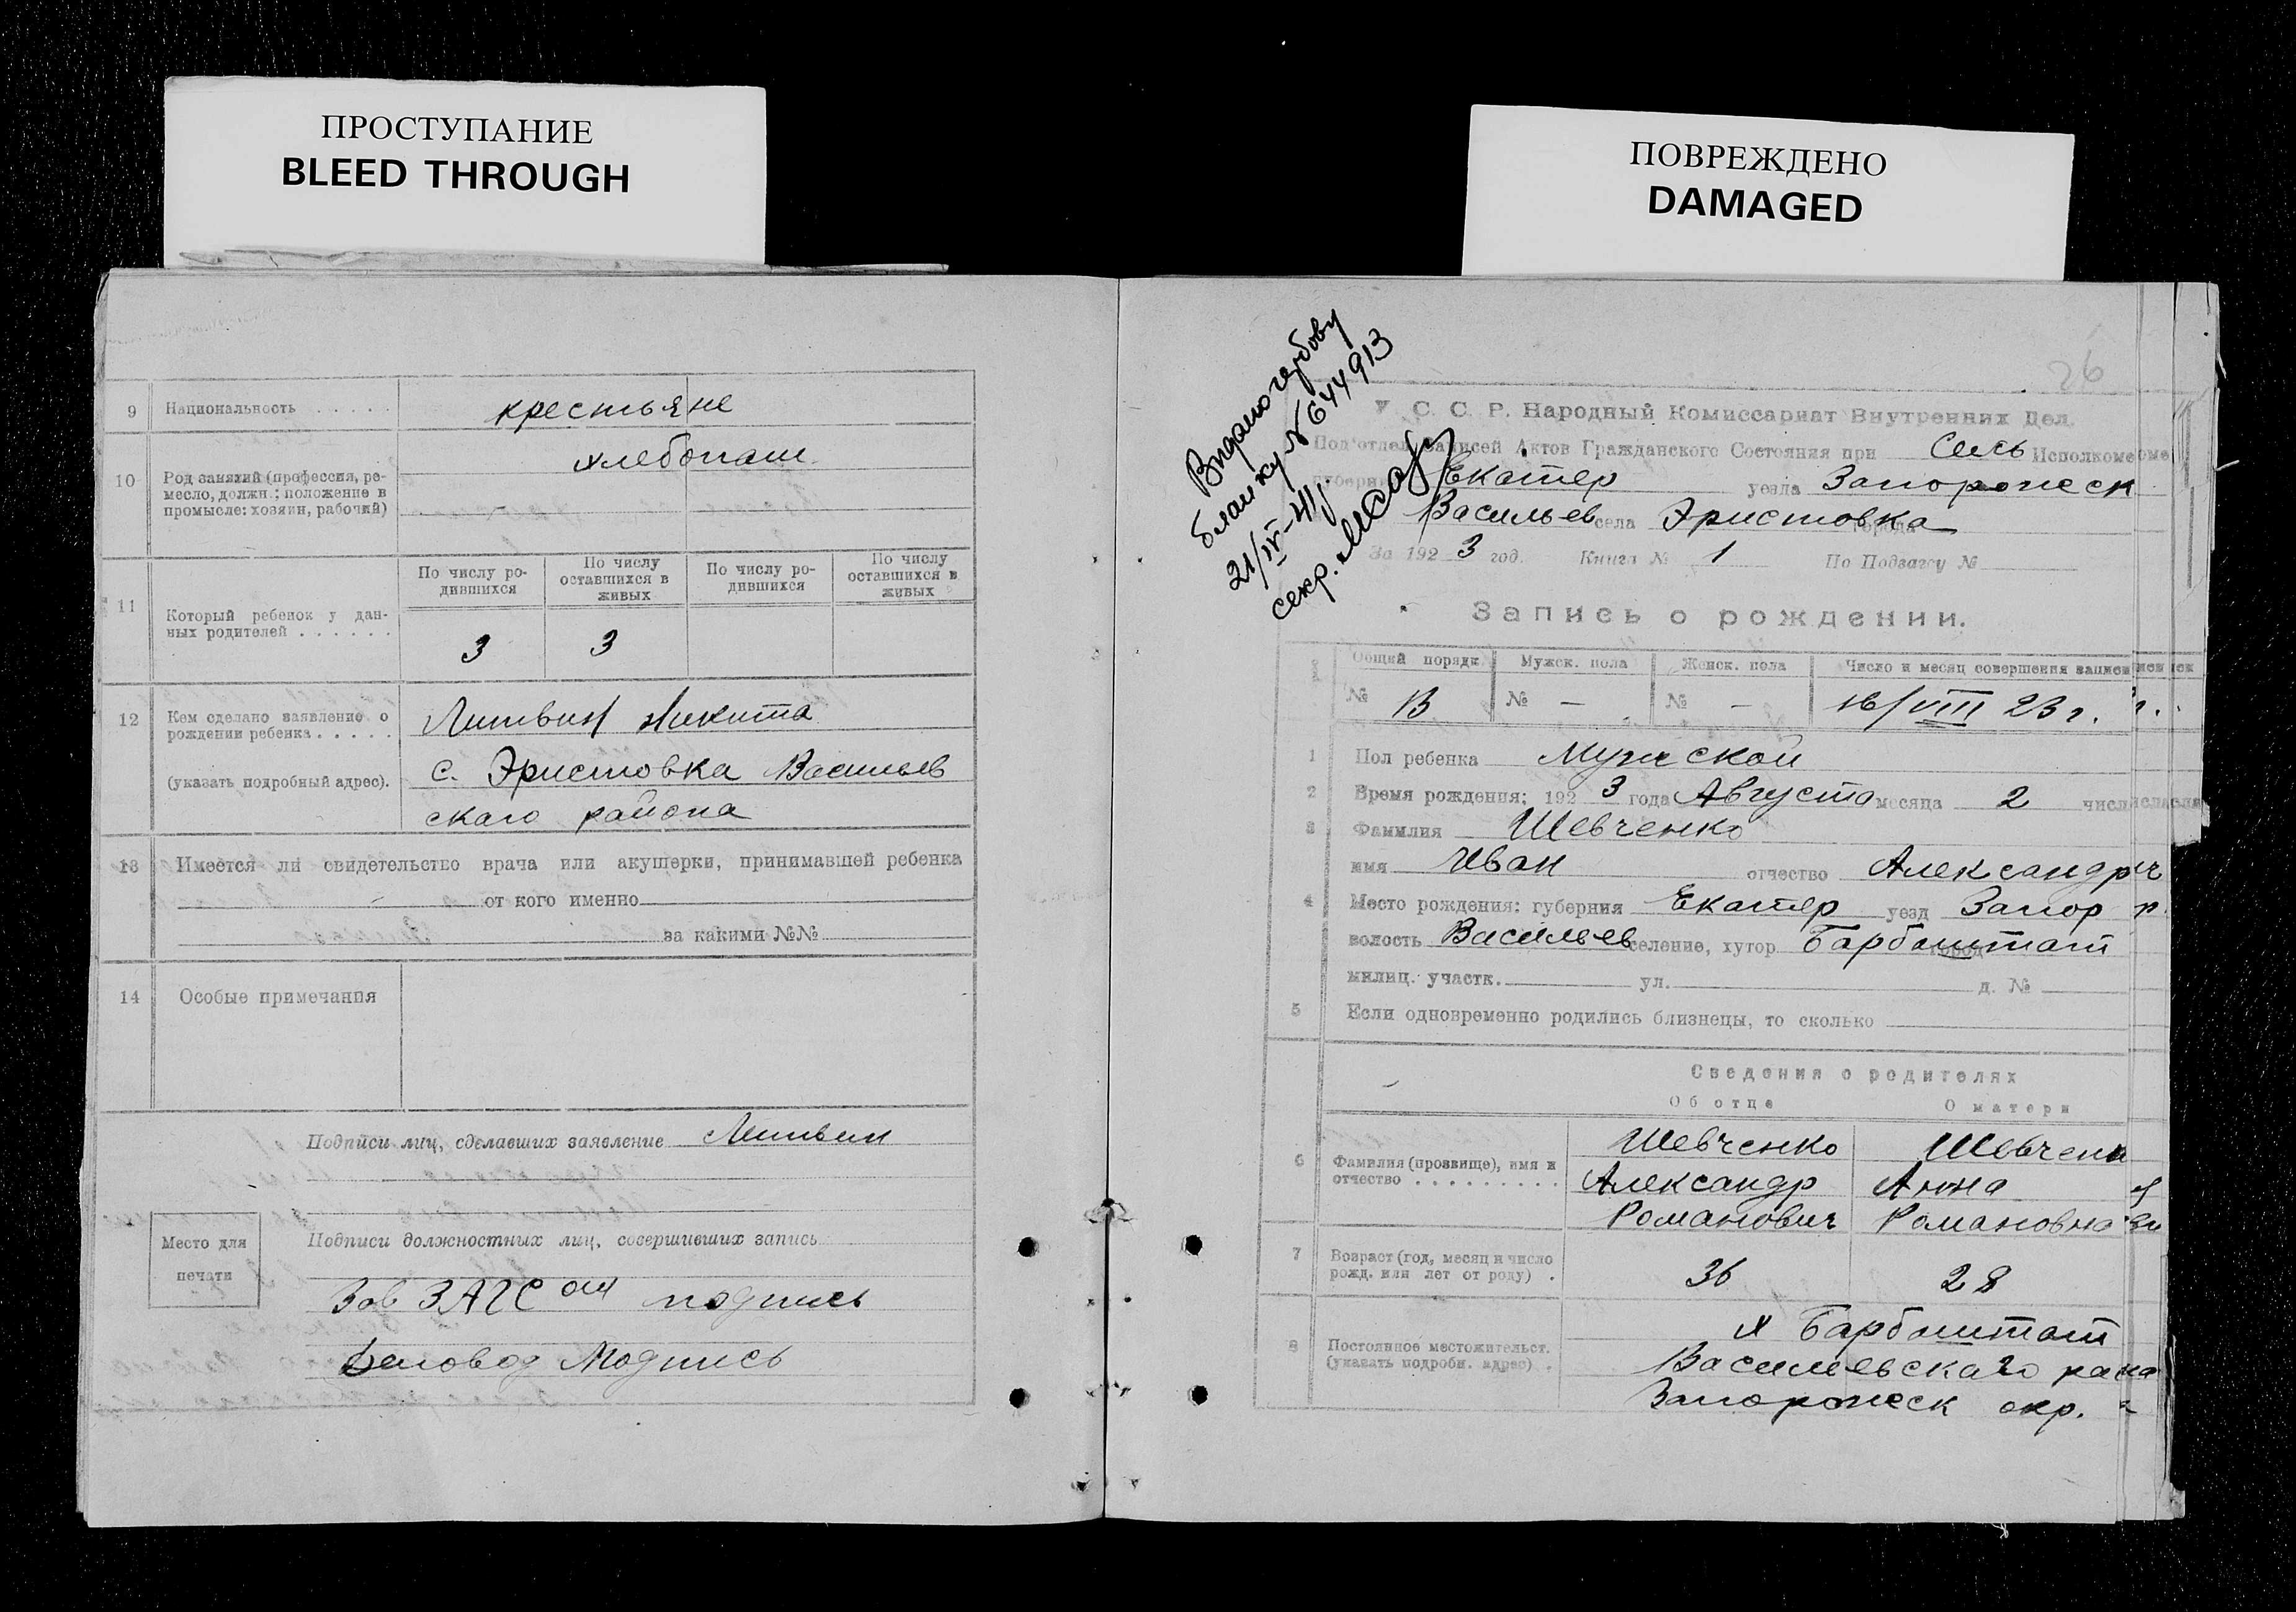 ПРОСТУПАНИЕ
BLEED THROUGH
9 Национальность . . . . . крестьяне
10 Род занятий (профессия, ре-
месло, должн.; положение в
промысле: хозяин, рабочий)
хлебопаш
11 Который ребенок у дан-
ных родителей . . . . . .
По числу ро-
дившихся
По числу
оставшихся в
живых
По числу ро-
дившихся
По числу
оставшихся в
живых
3 3
12 Кем сделано заявление о
рождении ребенка . . . . .
(указать подробный адрес).
Литвин Никита
с. Эристовка Васильев
скаго района
13 Имеется ли свидетельство врача или акушерки, принимавшей ребенка
от кого именно
за какими №№
14 Особые примечания
Подписи лиц, сделавших заявление Литвин
Место для
печати
Подписи должностных лиц, совершивших запись
Зав ЗАГСом подпись
Деловод Подпись
ПОВРЕЖДЕНО
DAMAGED
26
бланку № 644913
21/IV-41
секр.
У. С. С. Р. Народный Комиссариат Внутренних Дел.
Под'отдел Записей Актов Гражданского Состояния при Сель Исполкоме
губерни Екатер уезда Запорожск
Васильев села Эристовка города
За 1923 год. Книга № 1 По Подзагсу №
Запись о рождении.
Общий поряди Мужск. пола Женск. пола Число и месяц совершения записи
№ 13 № — № — 16/VIII 23 г.
1 Пол ребенка Мужской
2 Время рождения: 1923 года Августа месяца 2 числ
3 Фамилия Шевченко
имя Иван отчество Александр
4 Место рождения: губерния Екатер уезд Запор
волость Васильев селение, хутор Барбоштат город
милиц. участк. ул. д. №
5 Если одновременно родились близнецы, то сколько
Сведения о родителях
Об отце О матери
6 Фамилия (прозвище), имя и
отчество . . . . . . . . .
Шевченко
Александр
Романович
Шевченк
Анна
Романовна
7 Возраст (год, месяц и число
рожд. или лет от роду) .
36 28
8 Постоянное местожительст.
(указать подробн. адрес) .
х Барбоштат
Васильевскаго рана
Запорожск окр.